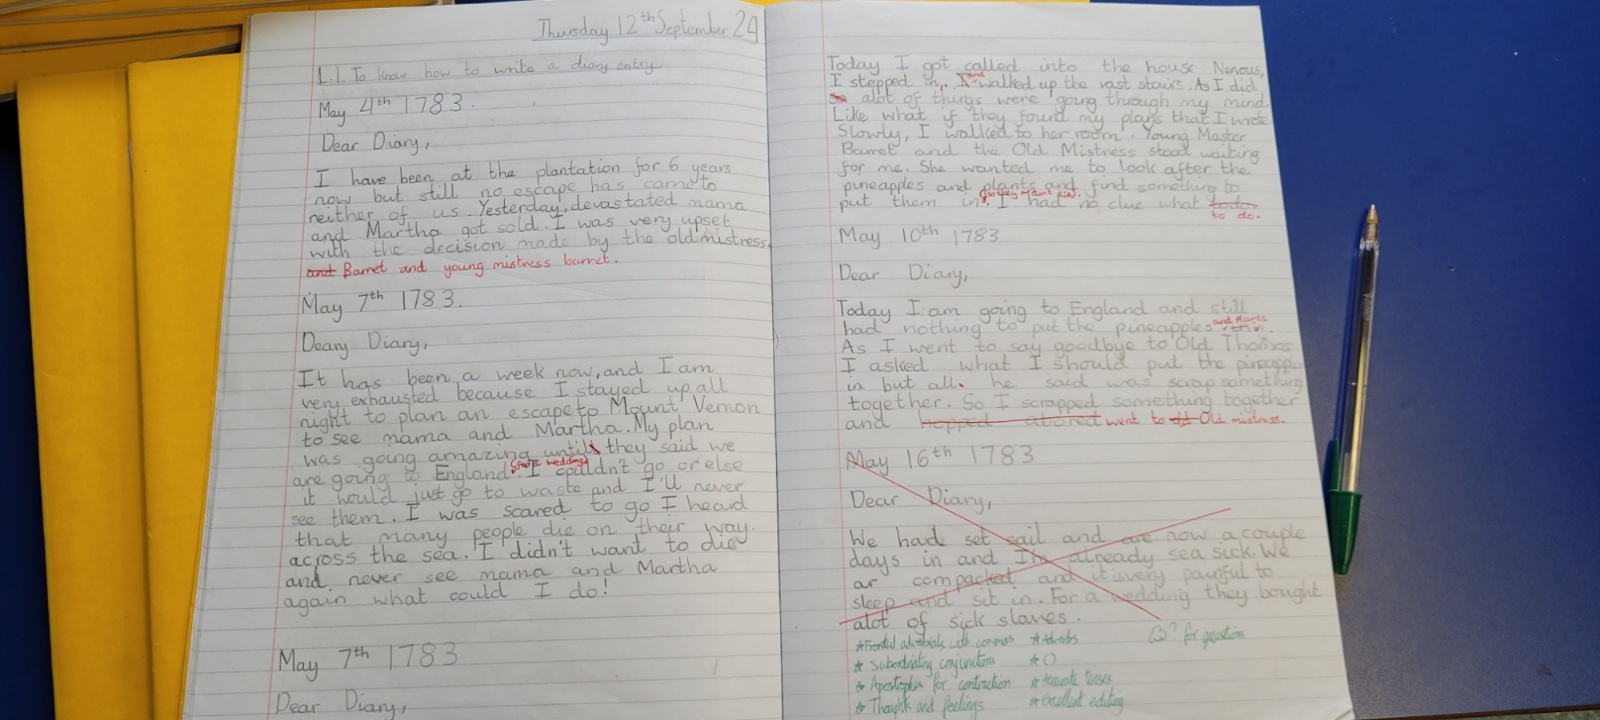 Thursday 12th September 24
L.I. To know how to write a diary entry
May 4th 1783.
Dear Diary,
I have been at the plantation for 6 years
now but still no escape has came to
neither of us. Yesterday, devastated mama
and Martha got sold. I was very upset
with the decision made by the old mistress
and Barret and young mistress barret.
May 7th 1783.
Deary Diary,
It has been a week now, and I am
very exhausted because I stayed up all
night to plan an escape to Mount Vernon
to see mama and Martha. My plan
was going amazing until they said we
are going to England (for a wedding). I couldn't go or else
it would just go to waste and I'll never
see them. I was scared to go I heard
that many people die on their way
across the sea. I didn't want to die
and never see mama and Martha
again what could I do!
May 7th 1783
Dear Diary,
Today I got called into the house. Nervous,
I stepped in, and walked up the vast stairs. As I did
so alot of things were going through my mind.
Like what if they found my plans that I wrote
Slowly, I walked to her room. Young Master
Barret and the Old Mistress stood waiting
for me. She wanted me to look after the
puneapples and plants and find something to
put them in. I had no clue what to do
to do.
May 10th 1783
Dear Diary,
Today I am going to England and still
had nothing to put the puneapples and plants in.
As I went to say goodbye to Old Thomas
I asked what I should put the puneapple
in but all he said was scrap something
together. So I scrapped something together
and hopped abored went to old Old mistress.
May 16th 1783
Dear Diary,
We had set sail and are now a couple
days in and I'm already sea sick. We
ar compacked and it is very painful to
sleep and sit in. For a wedding they bought
alot of sick slaves.
* Fronted adverbials with commas * Adverbs ? for question
* Subordinating conjunctions * ()
* Apostrophes for contraction * Accurate tenses
* Thoughts and feelings * Excellent editing